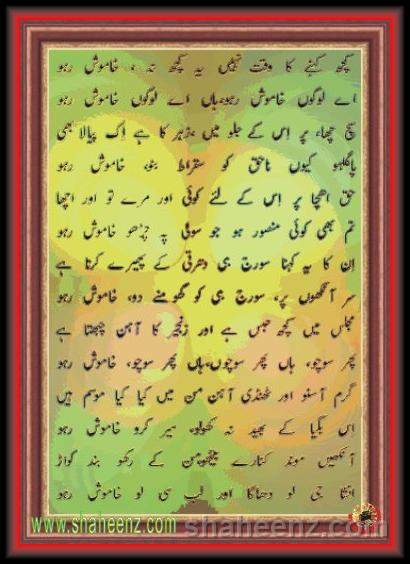 کچھ کہنے کا وقت نہیں یہ کچھ نہ ، خاموش رہو
اے لوگوں خاموش رہو،ہاں اے لوگوں خاموش رہو
سچ اچھا، پر اس کے جلو میں ،زہر کا ہے اِک پیالا بھی
پاگلہو کیوں ناحق کو سقراط بنو، خاموش رہو
حق اچھا پر اِس کے لئے کوئی اور مرے تو اور اچھا
تم بھی کوئی منصور ہو جو سولی پہ چڑھو خاموش رہو
اِن کا یہ کہنا سورج ہی دھرتی کے پھیرے کرتا ہے
سر آنکھوں پر، سورج ہی کو گھومنے دو، خاموش رہو
مجلس میں کچھ حبس ہے اور زنجیر کا آہن چبھتا ہے
پھر سوچو، ہاں پھر سوچوں،ہاں پھر سوچو، خاموش رہو
گرم آنسو اور ٹھنڈی آہن من میں کیا کیا موسم ہیں
اس بگیا کے بھید نہ کھولو، سیر کرو خاموش رہو
آنکھیں موند کنارے بیٹھو،من کے رکھو بند کواڑ
انشا جی لو دھاگا اور لب سی لو خاموش رہو
www.shaheenz.com shaheenz.com